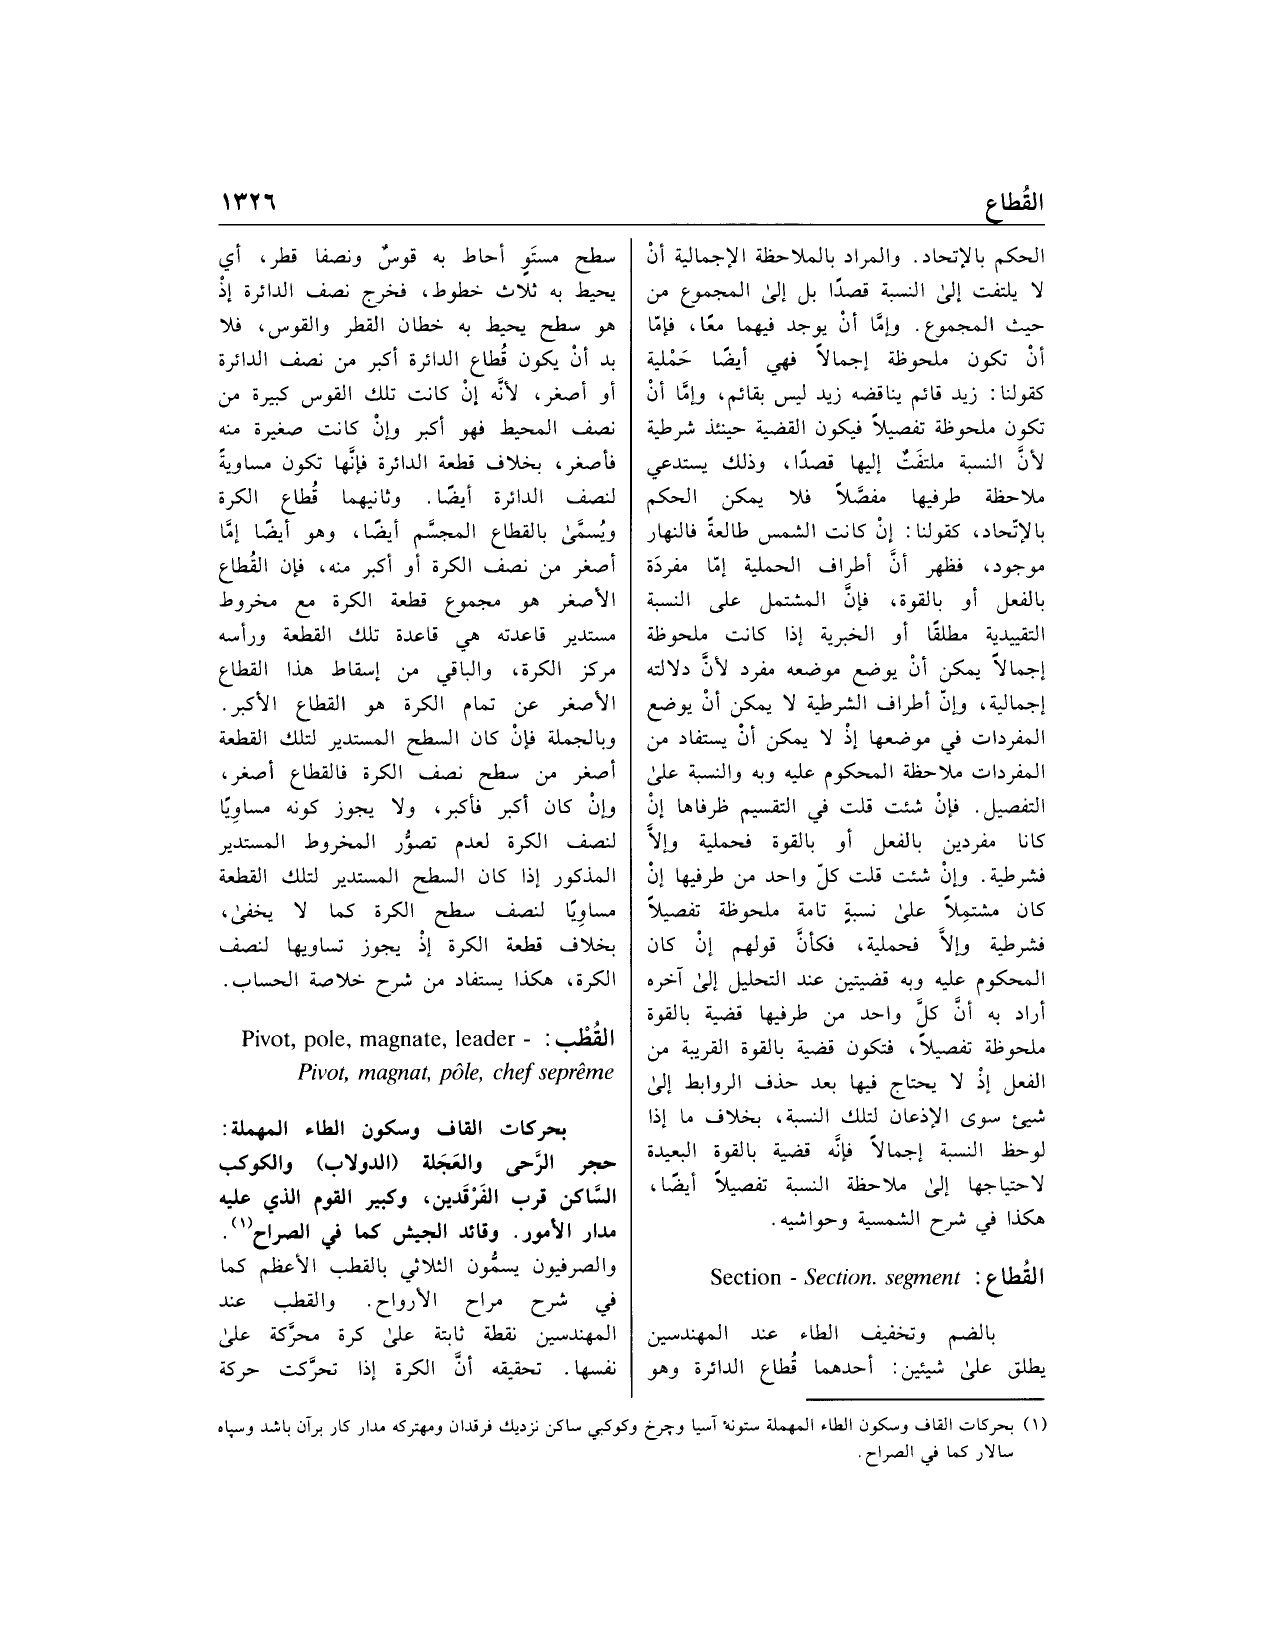 القُطاع
١٣٢٦
الحكم بالإتحاد. والمراد بالملاحظة الإجمالية أنْ
لا يلتفت إلىٰ النسبة قصدًا بل إلىٰ المجموع من
حيث المجموع. وإمَّا أنْ يوجد فيهما معًا، فإمّا
أنْ تكون ملحوظة إجمالاً فهي أيضًا حَمْلية
كقولنا: زيد قائم يناقضه زيد ليس بقائم، وإمَّا أنْ
تكون ملحوظة تفصيلاً فيكون القضية حينئذ شرطية
لأنَّ النسبة ملتفَتٌ إليها قصدًا، وذلك يستدعي
ملاحظة طرفيها مفصَّلاً فلا يمكن الحكم
بالإتّحاد، كقولنا: إنْ كانت الشمس طالعةً فالنهار
موجود، فظهر أنَّ أطراف الحملية إمّا مفردَة
بالفعل أو بالقوة، فإنَّ المشتمل على النسبة
التقييدية مطلقًا أو الخبرية إذا كانت ملحوظة
إجمالاً يمكن أنْ يوضع موضعه مفرد لأنَّ دلالته
إجمالية، وإنّ أطراف الشرطية لا يمكن أنْ يوضع
المفردات في موضعها إذْ لا يمكن أنْ يستفاد من
المفردات ملاحظة المحكوم عليه وبه والنسبة علىٰ
التفصيل. فإنْ شئت قلت في التقسيم ظرفاها إنْ
كانا مفردين بالفعل أو بالقوة فحملية وإلاَّ
فشرطية. وإنْ شئت قلت كلّ واحد من طرفيها إنْ
كان مشتمِلاً علىٰ نسبةٍ تامة ملحوظة تفصيلاً
فشرطية وإلاَّ فحملية، فكأنَّ قولهم إنْ كان
المحكوم عليه وبه قضيتين عند التحليل إلىٰ آخره
أراد به أنَّ كلَّ واحد من طرفيها قضية بالقوة
ملحوظة تفصيلاً، فتكون قضية بالقوة القريبة من
الفعل إذْ لا يحتاج فيها بعد حذف الروابط إلىٰ
شيئ سوى الإذعان لتلك النسبة، بخلاف ما إذا
لوحظ النسبة إجمالاً فإنَّه قضية بالقوة البعيدة
لاحتياجها إلىٰ ملاحظة النسبة تفصيلاً أيضًا،
هكذا في شرح الشمسية وحواشيه.
القُطاع: Section - Section. segment
بالضم وتخفيف الطاء عند المهندسين
يطلق علىٰ شيئين: أحدهما قُطاع الدائرة وهو
سطح مستَوٍ أحاط به قوسٌ ونصفا قطر، أي
يحيط به ثلاث خطوط، فخرج نصف الدائرة إذْ
هو سطح يحيط به خطان القطر والقوس، فلا
بد أنْ يكون قُطاع الدائرة أكبر من نصف الدائرة
أو أصغر، لأنَّه إنْ كانت تلك القوس كبيرة من
نصف المحيط فهو أكبر وإنْ كانت صغيرة منه
فأصغر، بخلاف قطعة الدائرة فإنَّها تكون مساويةً
لنصف الدائرة أيضًا. وثانيهما قُطاع الكرة
ويُسمَّىٰ بالقطاع المجسَّم أيضًا، وهو أيضًا إمَّا
أصغر من نصف الكرة أو أكبر منه، فإن القُطاع
الأصغر هو مجموع قطعة الكرة مع مخروط
مستدير قاعدته هي قاعدة تلك القطعة ورأسه
مركز الكرة، والباقي من إسقاط هذا القطاع
الأصغر عن تمام الكرة هو القطاع الأكبر.
وبالجملة فإنْ كان السطح المستدير لتلك القطعة
أصغر من سطح نصف الكرة فالقطاع أصغر،
وإنْ كان أكبر فأكبر، ولا يجوز كونه مساوِيًا
لنصف الكرة لعدم تصوُّر المخروط المستدير
المذكور إذا كان السطح المستدير لتلك القطعة
مساوِيًا لنصف سطح الكرة كما لا يخفىٰ،
بخلاف قطعة الكرة إذْ يجوز تساويها لنصف
الكرة، هكذا يستفاد من شرح خلاصة الحساب.
القُطْب: Pivot, pole, magnate, leader -
Pivot, magnat, pôle, chef seprême
بحركات القاف وسكون الطاء المهملة:
حجر الرَّحى والعَجَلة (الدولاب) والكوكب
السَّاكن قرب الفَرْقَدين، وكبير القوم الذي عليه
مدار الأمور. وقائد الجيش كما في الصراح(١).
والصرفيون يسمُّون الثلاثي بالقطب الأعظم كما
في شرح مراح الأرواح. والقطب عند
المهندسين نقطة ثابتة علىٰ كرة محرَّكة علىٰ
نفسها. تحقيقه أنَّ الكرة إذا تحرَّكت حركة
(١) بحركات القاف وسكون الطاء المهملة ستونهٔ آسيا وچرخ وكوكبي ساكن نزديك فرقدان ومهتركه مدار كار برآن باشد وسپاه
سالار كما في الصراح.